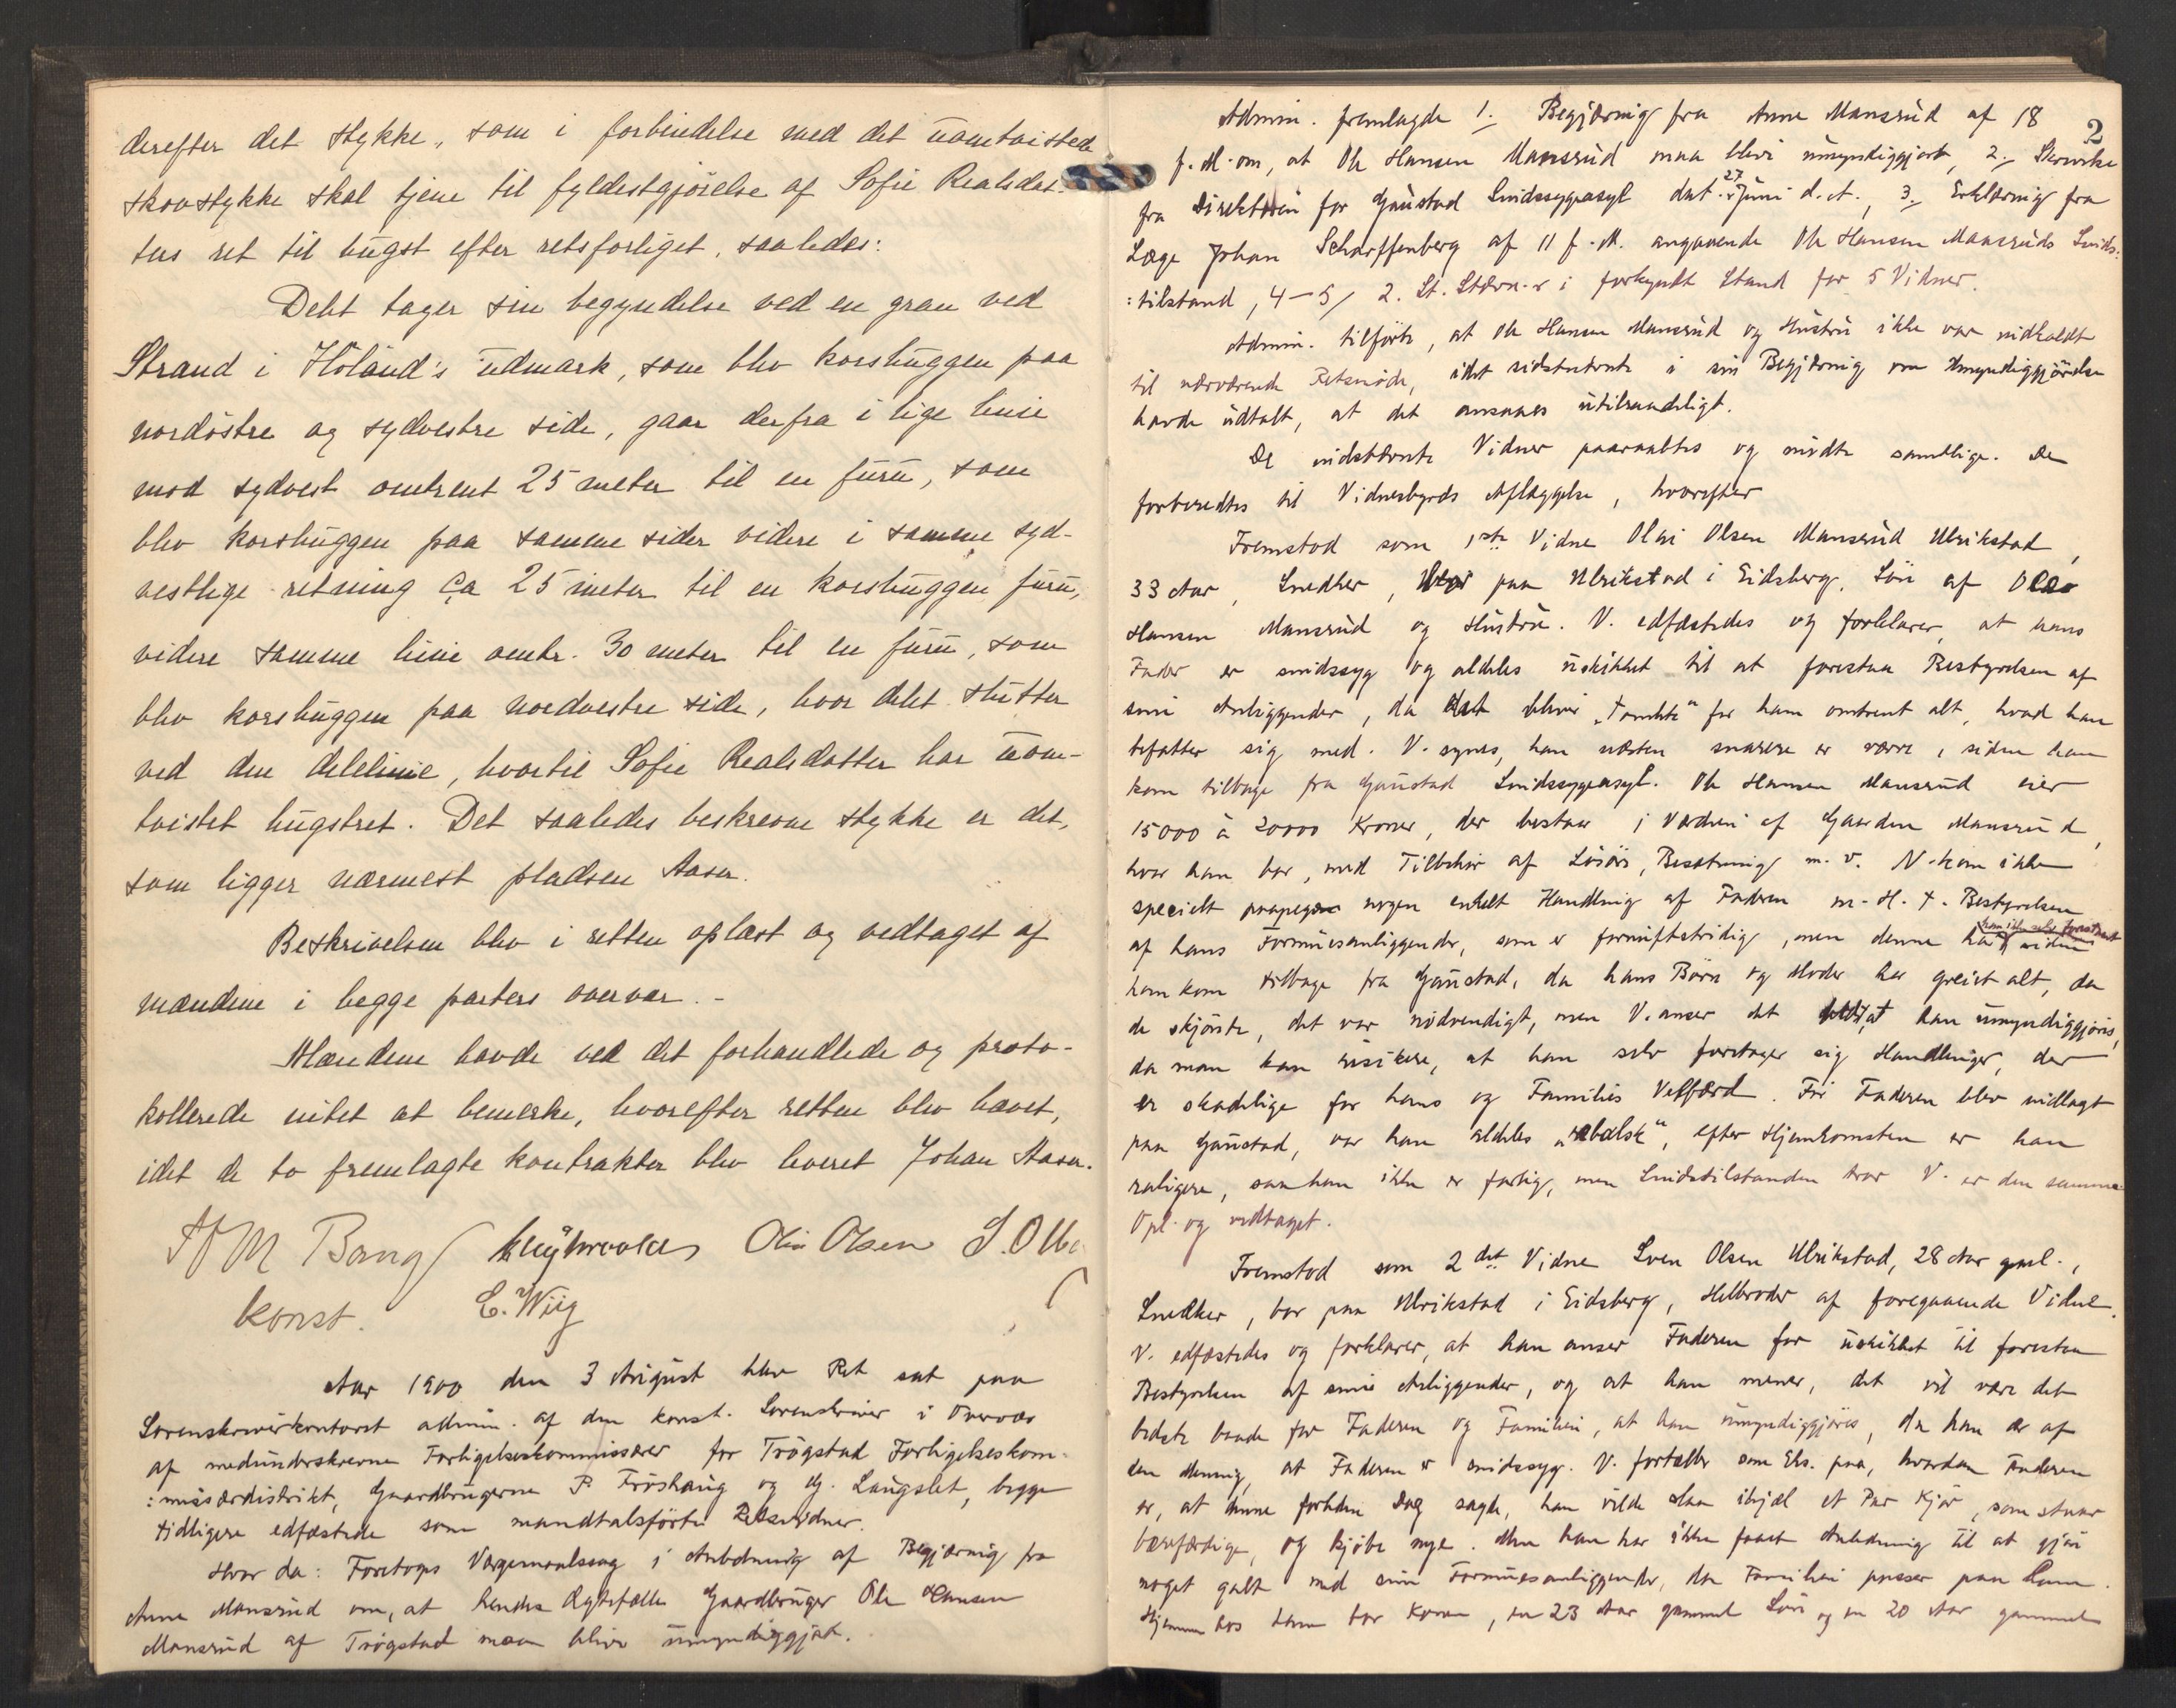 derefter det stykke, som i forbindelse med det uomtvistede
skovstykke skal tjene til fyldestgjørelse af Sofie Realsdat-
ters ret til hugst efter retsforliget, saaledes:
Delet tager sin begyndelse ved en gran ved
Strand i Hölands udmark, som blev korshuggen paa
nordøstre og sydvestre side, gaar derfra i lige linie
mod sydvest omtrent 25 meter til en furu, som
blev korshuggen paa samme sider videre i samme syd-
vestlige retning ca 25 meter til en korshuggen furu,
videre samme linie omtr. 30 meter til en furu, som
blev korshuggen paa nordvestre side, hvor delet slutter
ved den delelinie, hvortil Sofie Realsdatter har uom-
tvistet hugstret. Det saaledes beskrevne stykke er det,
som ligger nærmest pladsen Aasen.
Beskrivelsen blev i retten oplæst og vedtaget af
mændene i begge parters overvær. -
Mændene havde ved det forhandlede og proto-
kollerede intet at bemerke, hvorefter retten blev hævet,
idet de to fremlagte kontrakter blev leveret Johan Aasen.
Bang Olsen
konst. E. Wiig
Aar 1900 den 3 August blev Ret sat paa
Sorenskriverkontoret admin. af den konst. Sorenskriver i Overvær
af medunderskrevne Forligelseskommissærer for Trøgstad Forligelseskom-
:missærdistrikt, Gaardbrugerne P. Frøshaug og G. Langslet, begge
tidligere edfæstede som mandtalsførte Retsvidner.
Hvor da: Foretoges Værgemaalssag i Anledning af Begjæring fra
Anne Mansrud om, at hendes Ægtefælle Gaardbruger Ole Hansen
Mansrud af Trøgstad maa blive umyndiggjort.
2
Admin. fremlagde 1./ Begjæring fra Anne Mansrud af 18
f. M. om, at Ole Hansen Mansrud maa blive umyndiggjort, 2./ Skrivelse
fra Direktøren for Gaustad Sindssygeasyl dat. 27 Juni d. A., 3./ Erklæring fra
Læge Johan Scharffenberg af 11 f. M. angaaende Ole Hansen Mansruds Sinds-
:tilstand, 4-5/ 2. St. Stævn.r i forkyndt Stand for 5 Vidner.
Admin. tilførte, at Ole Hansen Mansrud og Hustru ikke var indkaldt
til nærværende Retsmøde, idet sidstnævnte i sin Begjæring om Umyndiggjørelse
havde udtalt, at det ansaaes utilraadeligt.
De indstævnte Vidner paaraabtes og mødte samtlige. De
forberedtes til Vidnesbyrds Aflæggelse, hvorefter
Fremstod som 1ste Vidne Olai Olsen Mansrud Ulrikstad,
33 Aar, Snedker, bor paa Ulrikstad i Eidsberg. Søn af Ole
Hansen Mansrud og Hustru. V. edfæstedes og forklarer, at hans
Fader er sindssyg og aldeles uskikket til at forestaa Bestyrelsen af
sine Anliggender, da det bliver "tomhete" for ham omtrent alt, hvad han
befatter sig med. V. synes, han næsten snarere er værre, siden han
kom tilbage fra Gaustad Sindssygeasyl. Ole Hansen Mansrud eier
15000 à 20000 Kroner, der bestaar i Værdien af Gaarden Mansrud,
hvor han bor, med Tilbehør af Løsøre, Besætning m. v. V. kan ikke
specielt paapege nogen enkelt Handling af Faderen m. H. t. Bestyrelsen
af hans Formuesanliggender, som er fornuftstridig, men denne har han ikke selv forestaaet siden
han kom tilbage fra Gaustad, da hans Børn og Moder har greiet alt, da
de skjønte, det var nødvendigt, men V. anser det at han umyndiggjøres,
da man kan risikere, at han selv foretager sig Handlinger, der
er skadelige for hans og Familiens Velfærd. Før Faderen blev indlagt
paa Gaustad, var han aldeles "rebelsk", efter Hjemkomsten er han
roligere, saa han ikke er farlig, men Sindstilstanden tror V. er den samme.
Opl. og vedtaget.
Fremstod som 2det Vidne Sven Olsen Ulrikstad, 28 Aar gml.,
Snedker, bor paa Ulrikstad i Eidsberg, Helbroder af foregaaende Vidne.
V. edfæstedes og forklarer, at han anser Faderen for uskikket til forestaa
Bestyrelsen af sine Anliggender, og at han mener, det vil være det
bedste baade for Faderen og Familien, at han umyndiggjøres, da han er af
den Mening, at Faderen er sindssyg. V. fortæller som Eks. paa, hvordan Faderen
er, at denne forleden Dag sagde, han vilde slaa ihjæl et Par Kjør, som staar
bærefærdige, og kjøbe nye. Men han har ikke faaet Anledning til at gjøre
noget galt med sine Formuesanliggender, da Familien passer paa ham.
Hjemme hos ham bor Konen, en 23 Aar gammel Søn og en 20 Aar gammel